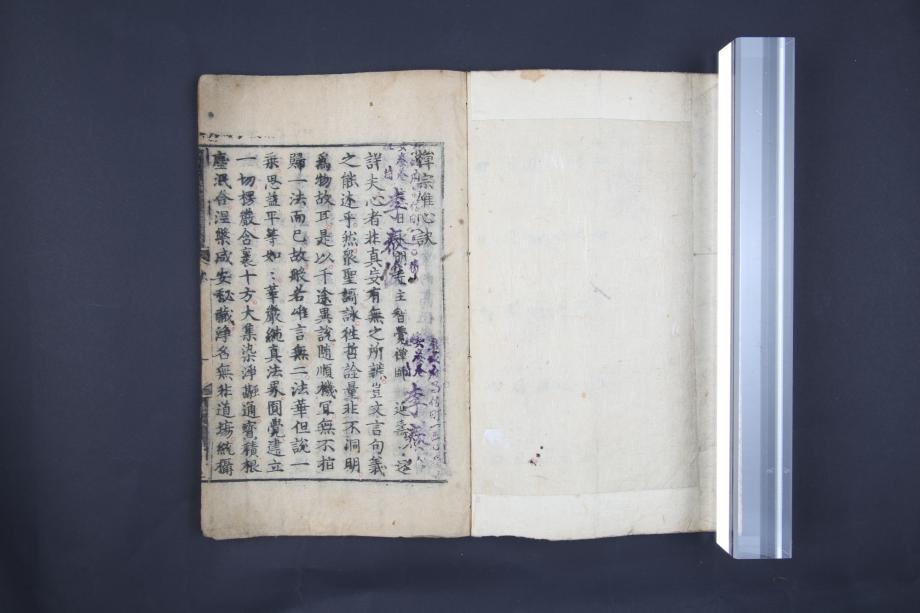 禪宗唯心訣
大明寺主智覺禪師 延壽 述
詳夫心者非真妄有無之所辯豈文言句義
之能述乎然衆聖謌詠徃哲詮量非不洞明
爲物故耳是以千途異說随順機冝無不指
歸一法而已故般若唯言無二法華但說一
乘思益平等如〻華嚴純真法界圓覺建立
一切楞嚴含褁十方大集染淨融通寶積根
塵泯合涅槃咸安秘藏淨名無非道塲統攝
李
李